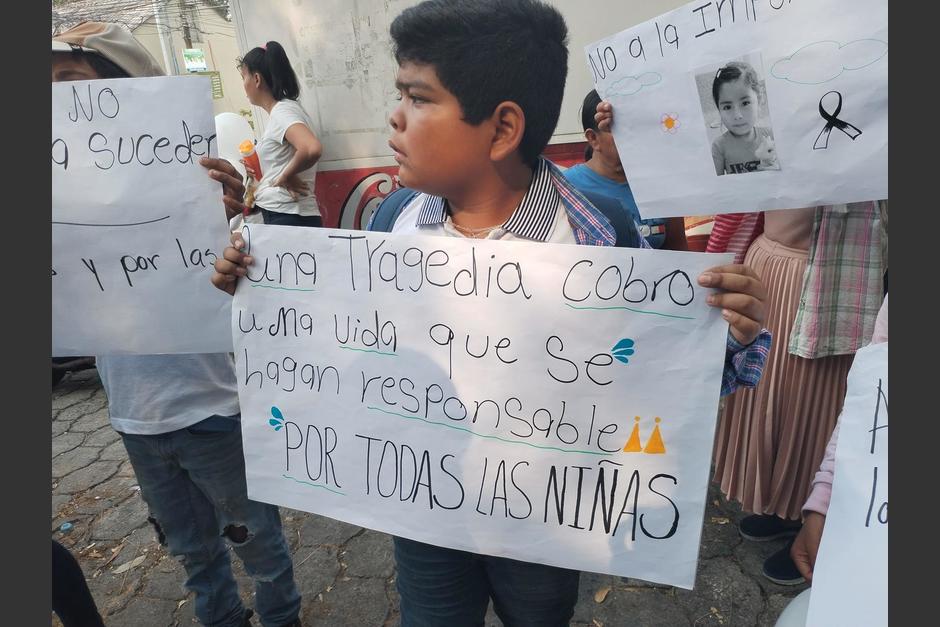 NO
a suceder
y por las
Una Tragedia cobro
una vida que se
hagan responsable!!
POR TODAS LAS NIÑAS
No a la